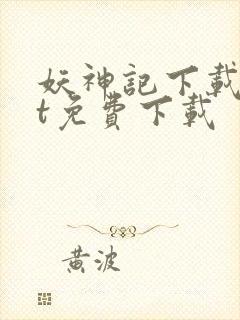 妖神記下載
t免費下載
黃波